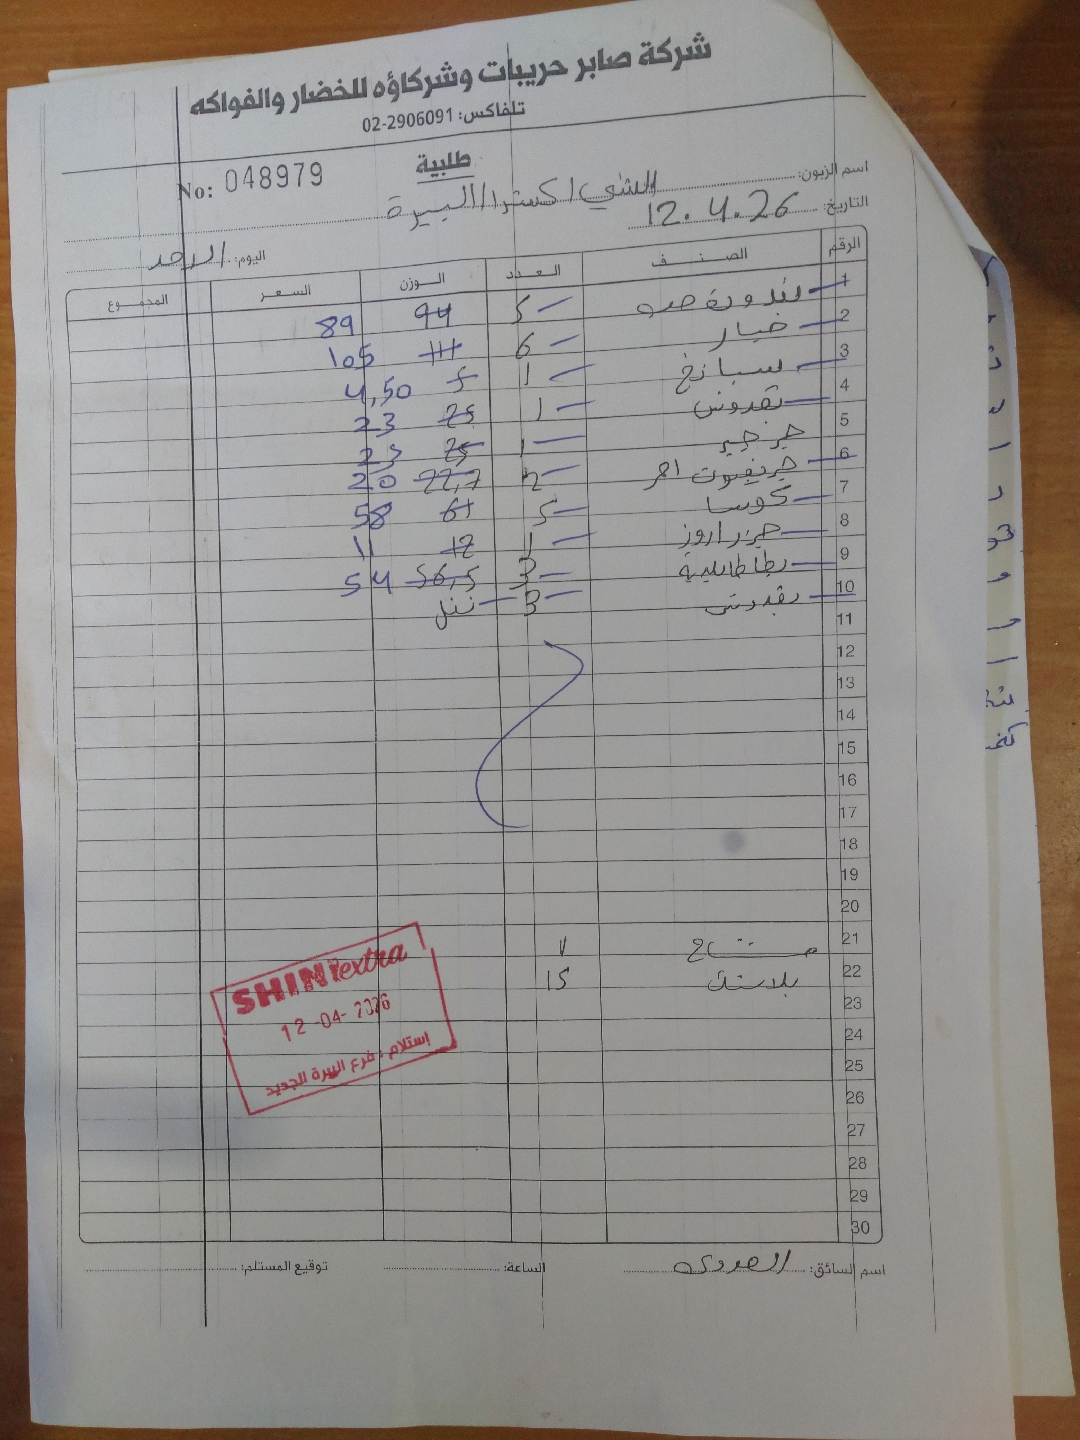 شركة صابر حريبات وشركاؤه للخضار والفواكه
تلفاكس: 02-2906091
طلبية
No: 048979
اسم الزبون: الشني اكسترا/البيرة
التاريخ: 12.4.26
اليوم: الاحد
الرقم الصنف العدد الوزن السعر المجموع
1 بندورة 5 94 89
2 خيار 6 111 105
3 سبانخ 1 5 4,50
4 بقدونس 1 25 23
5 جرجير 1 25 23
6 جريفوت احمر 2 22,7 20
7 كوسا 5 61 58
8 جزر اروز 1 12 11
9 بطاطا 3 56,5 54
10 بقدونس 3
11
12
13
14
15
16
17
18
19
20
21 7
22 بلاستك 15
23
24
25
26
27
28
29
30
SHINI extra
12-04-2026
إستلام : فرع البيرة الجديد
اسم السائق:
الساعة:
توقيع المستلم: